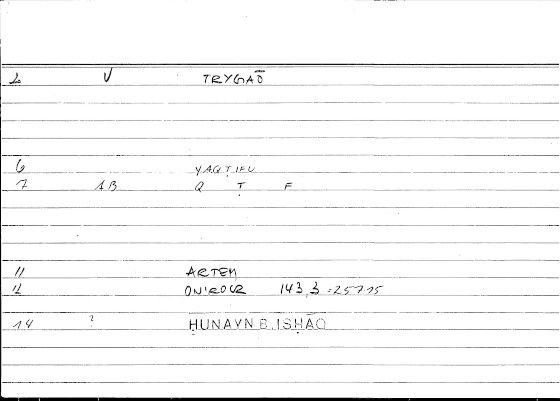 2 V TRYGAŌ
6 YAQṬIFU
7 AB Q Ṭ F
11 ARTEM
12 ONIROCR 143,3 = 257.15
14 ? ḤUNAYN B. ISḤĀQ